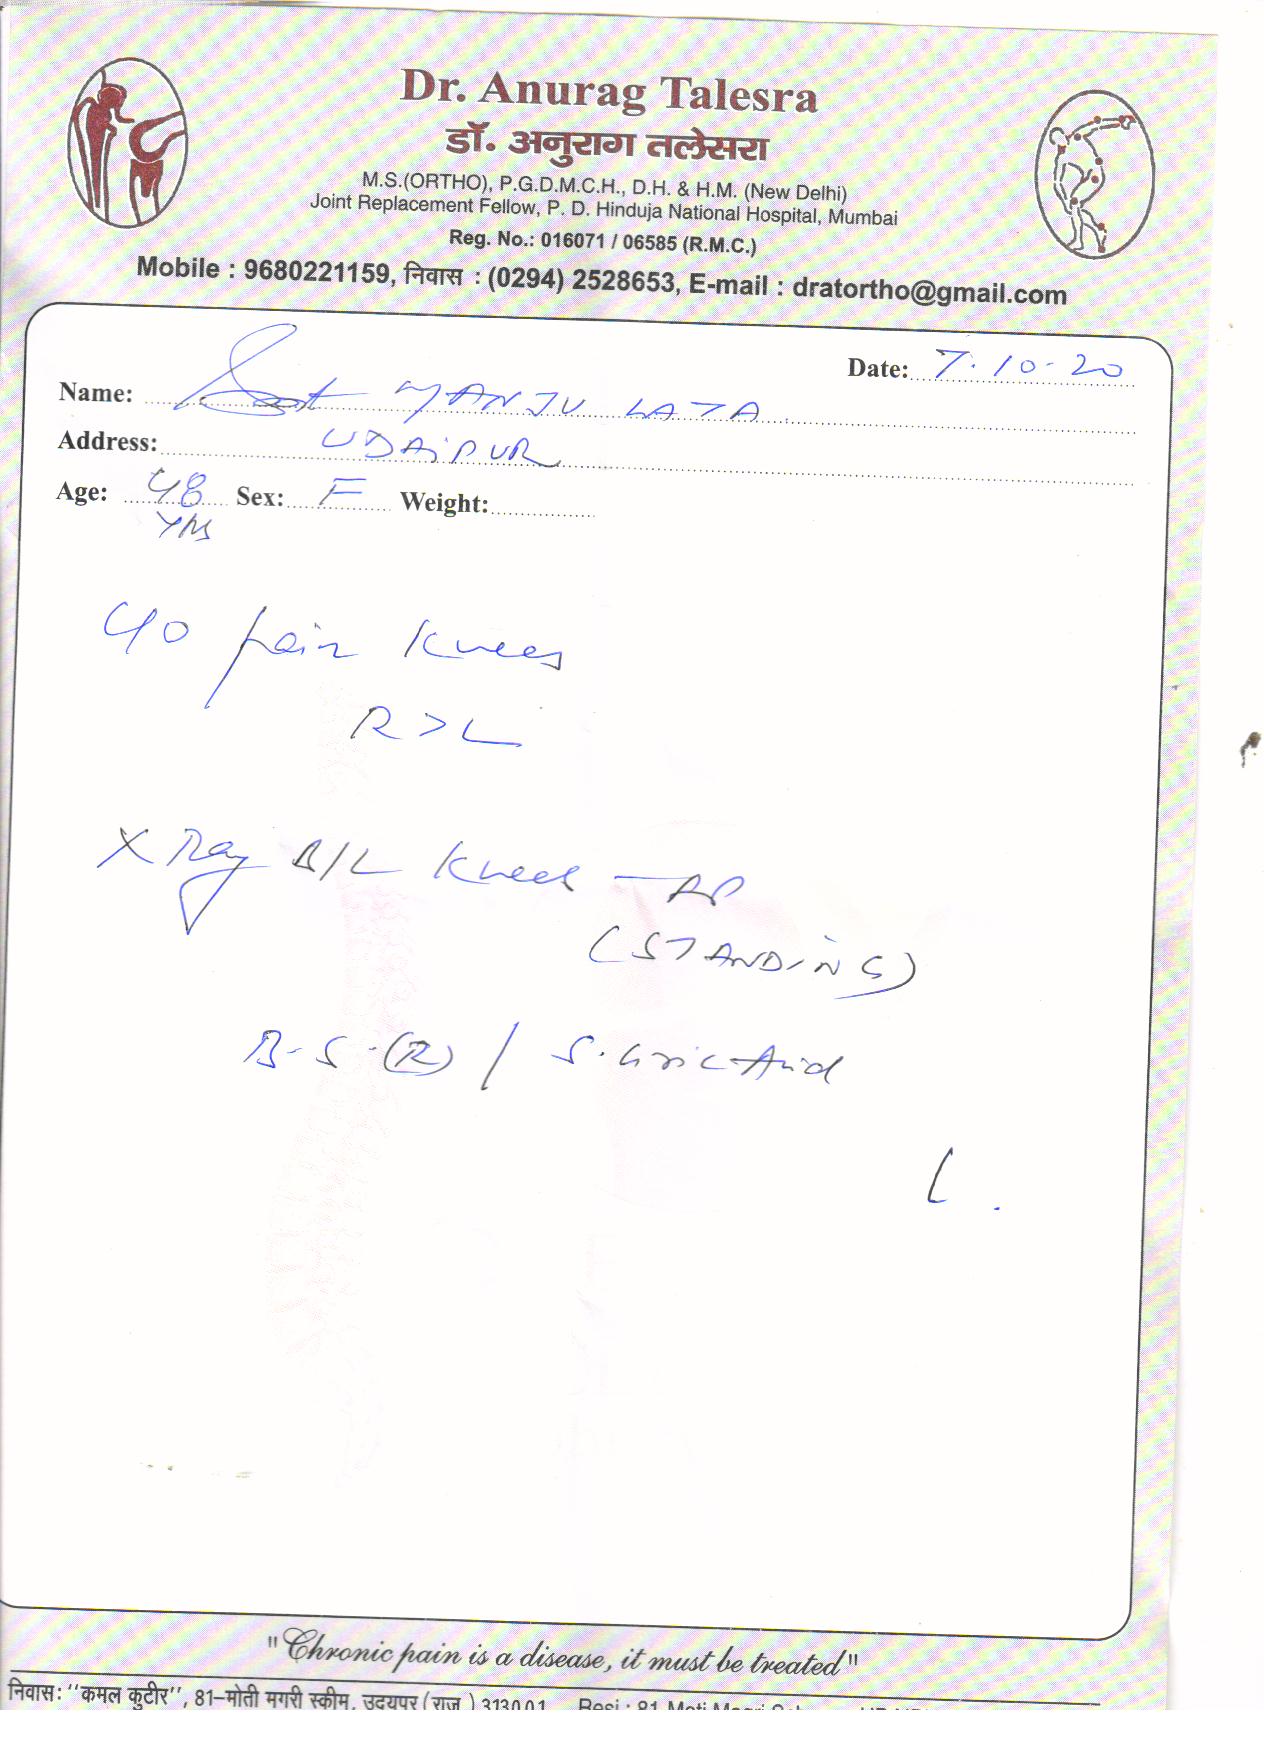 Dr. Anurag Talesra
डॉ. अनुराग तलेसरा
M.S.(ORTHO), P.G.D.M.C.H., D.H. & H.M. (New Delhi)
Joint Replacement Fellow, P. D. Hinduja National Hospital, Mumbai
Reg. No.: 016071 / 06585 (R.M.C.)
Mobile : 9680221159, निवास : (0294) 2528653, E-mail : dratortho@gmail.com
Date: 7.10.20
Name: Smt MANJU LATA
Address: UDAIPUR
Age: 48 Sex: F Weight:
yrs
c/o pain knees
R > L
X Ray B/L knees – AP
(STANDING)
B.S.(R) / S. Uric Acid
"Chronic pain is a disease, it must be treated"
निवास: "कमल कुटीर", 81–मोती मगरी स्कीम, उदयपुर (राज.) 313001 Resi : 81 Moti Magri